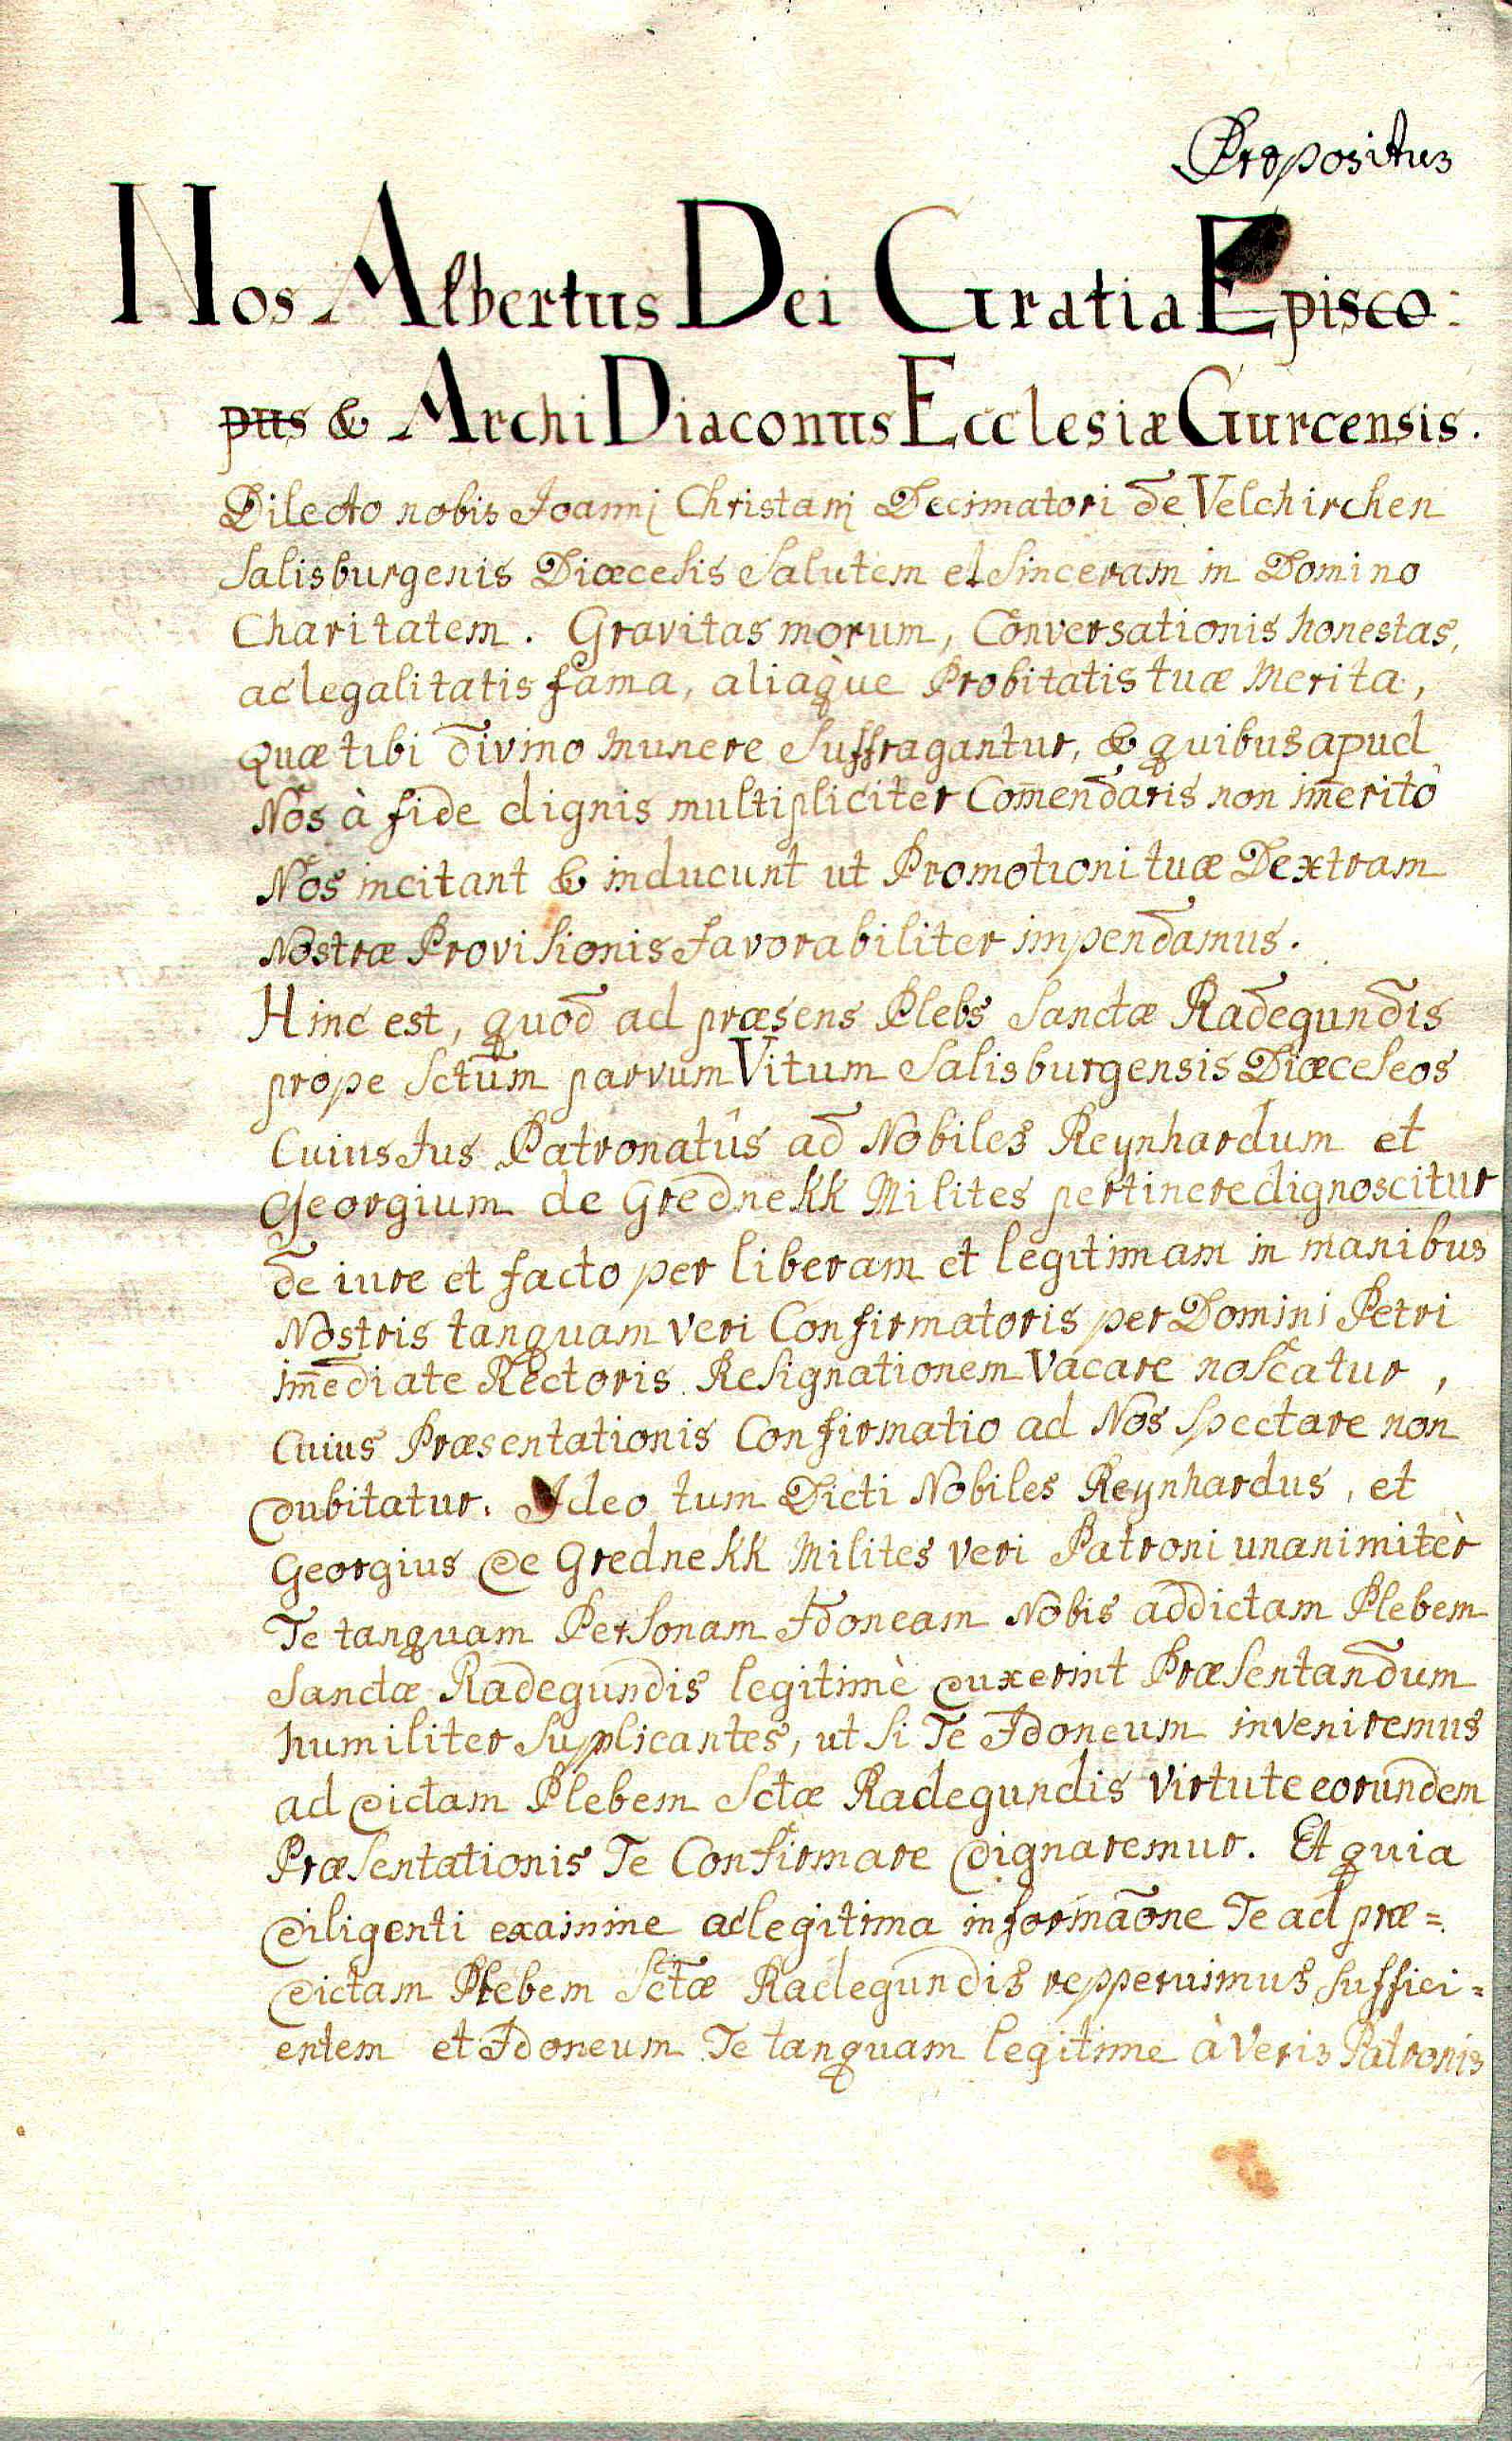 Propositus
Nos Albertus Dei Gratia Episco:
pus & ArchiDiaconus Ecclesiæ Gurcensis.
Dilecto nobis Joannj Christanj Decimatori de Velchirchen
Salisburgenis Diœcesis Salutem et Sinceram in Domino
Charitatem. Gravitas morum, Conversationis honestas,
ac legalitatis fama, aliaqùe Probitatis tuæ Merita,
Quæ tibi divino Munere Suffragantur, & quibus apud
Nos à fide dignis multipliciter Com̄endaris non im̄eritò
Nos incitant & inducunt ut Promotioni tuæ Dextram
Nostræ Provisionis favorabiliter impendamus.
Hinc est, quod ad præsens Plebs Sanctæ Radegundis
prope Sctum̄ parvum Vitum Salisburgensis Diœceseos
Cuius Jus Patronatûs ad Nobiles Reynhardum et
Georgium de Grednekk Milites pertinere dignoscitur
de iure et facto per liberam et legitimam in manibus
Nostris tanquam veri Confirmatoris per Domini Petri
im̄ediate Rectoris Resignationem Vacare noscatur,
Cuius Præsentationis Confirmatio ad Nos Spectare non
dubitatur. Ideo tum Dicti Nobiles Reynhardus, et
Georgius de Grednekk Milites veri Patroni unanimitèr
Te tanquam Personam Idoneam Nobis ad dictam Plebem
Sanctæ Radegundis legitimè duxerint Præsentandum
humiliter Suplicantes, ut Si Te Idoneum inveniremus
ad dictam Plebem Sctæ Radegundis Virtute eorundem
Præsentationis Te Confirmare dignaremur. Et quia
diligenti examine ac legitima informãone Te ad præ=
dictam Plebem Sctæ Radegundis repperuimus Suffici=
entem et Idoneum Te tanquam legitime à Veris Patronis